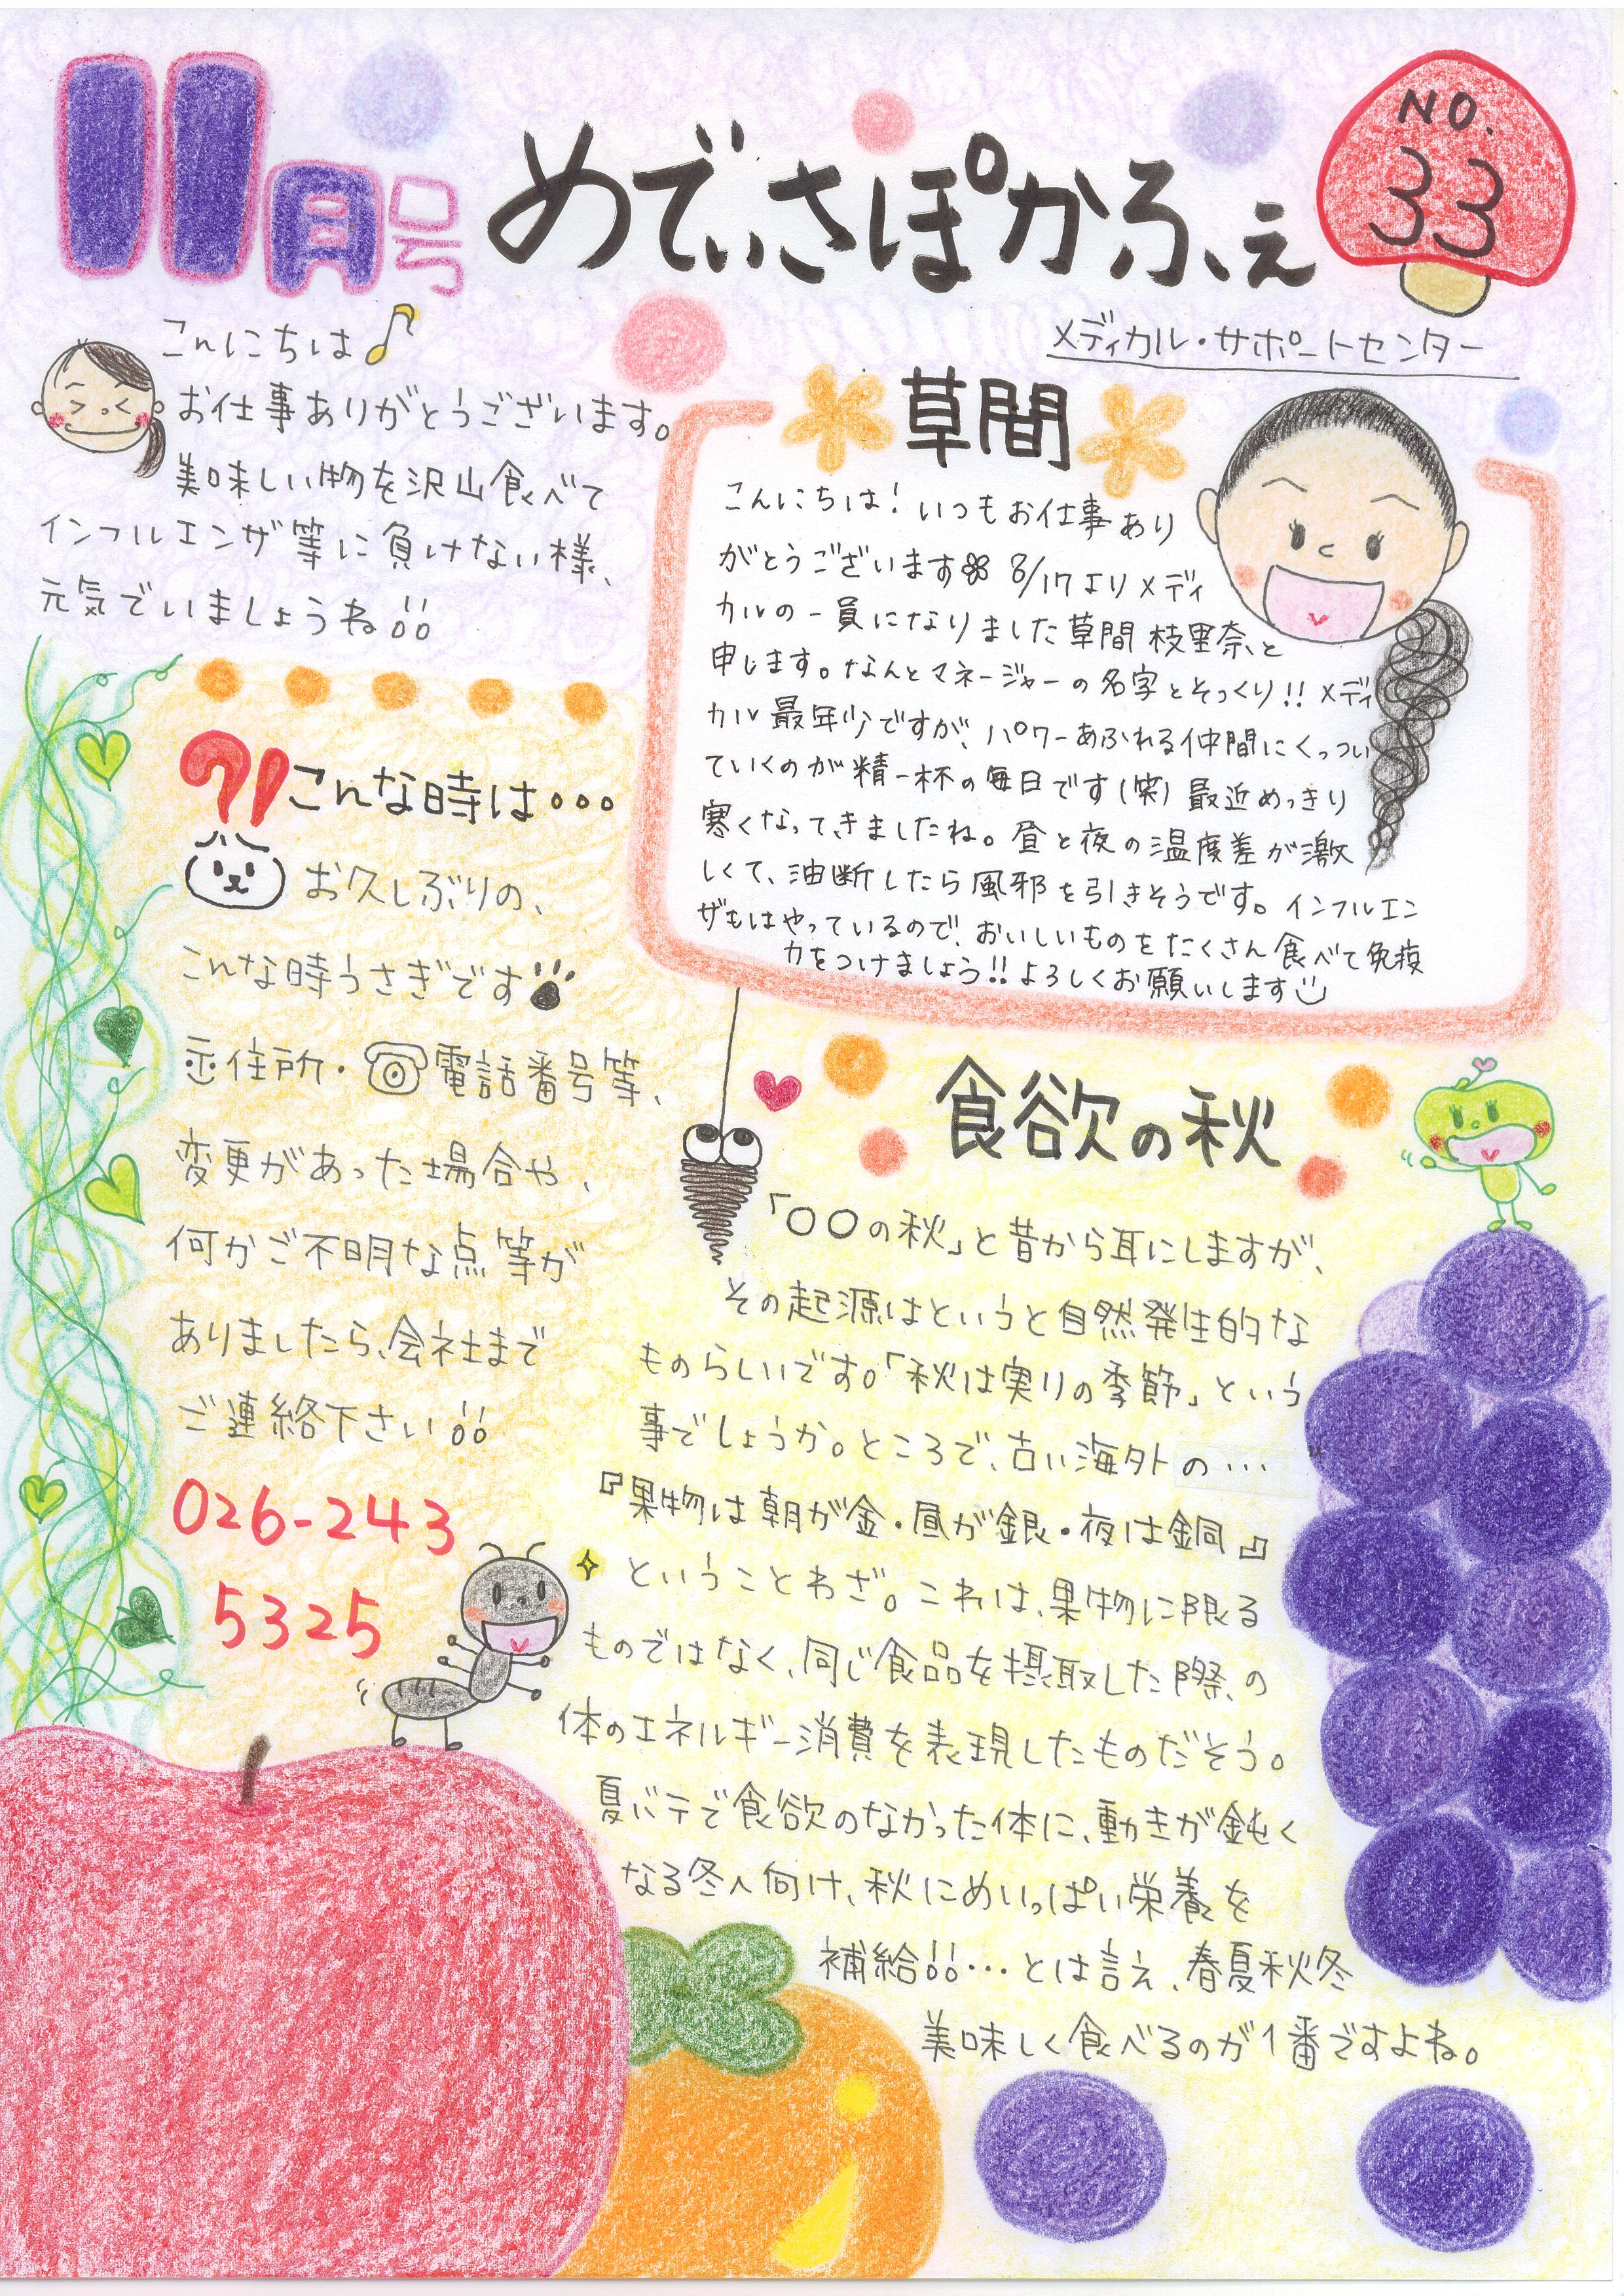 11月号
めでぃさぽかふぇ
NO.
33
メディカル・サポートセンター
こんにちは♪
お仕事ありがとうございます。
美味しい物を沢山食べて
インフルエンザ等に負けない様、
元気でいましょうね!!
草間
こんにちは!いつもお仕事あり
がとうございます 8/17よりメディ
カルの一員になりました草間枝里奈と
申します。なんとマネージャーの名字とそっくり!!メディ
カル最年少ですが、パワーあふれる仲間にくっつい
ていくのが精一杯の毎日です(笑)最近めっきり
寒くなってきましたね。昼と夜の温度差が激
しくて、油断したら風邪を引きそうです。インフルエン
ザもはやっているので、おいしいものをたくさん食べて免疫
力をつけましょう!!よろしくお願いします
?!こんな時は...
お久しぶりの、
こんな時うさぎです
住所・☎電話番号等、
変更があった場合や、
何かご不明な点等が
ありましたら、会社まで
ご連絡下さい!!
026-243
5325
食欲の秋
「○○の秋」と昔から耳にしますが、
その起源はというと自然発生的な
ものらしいです。「秋は実りの季節」という
事でしょうか。ところで、古い海外の...
『果物は朝が金・昼が銀・夜は銅』
ということわざ。これは、果物に限る
ものではなく、同じ食品を摂取した際の
体のエネルギー消費を表現したものだそう。
夏バテで食欲のなかった体に、動きが鈍く
なる冬へ向け、秋にめいっぱい栄養を
補給!!...とは言え、春夏秋冬
美味しく食べるのが1番ですよね。